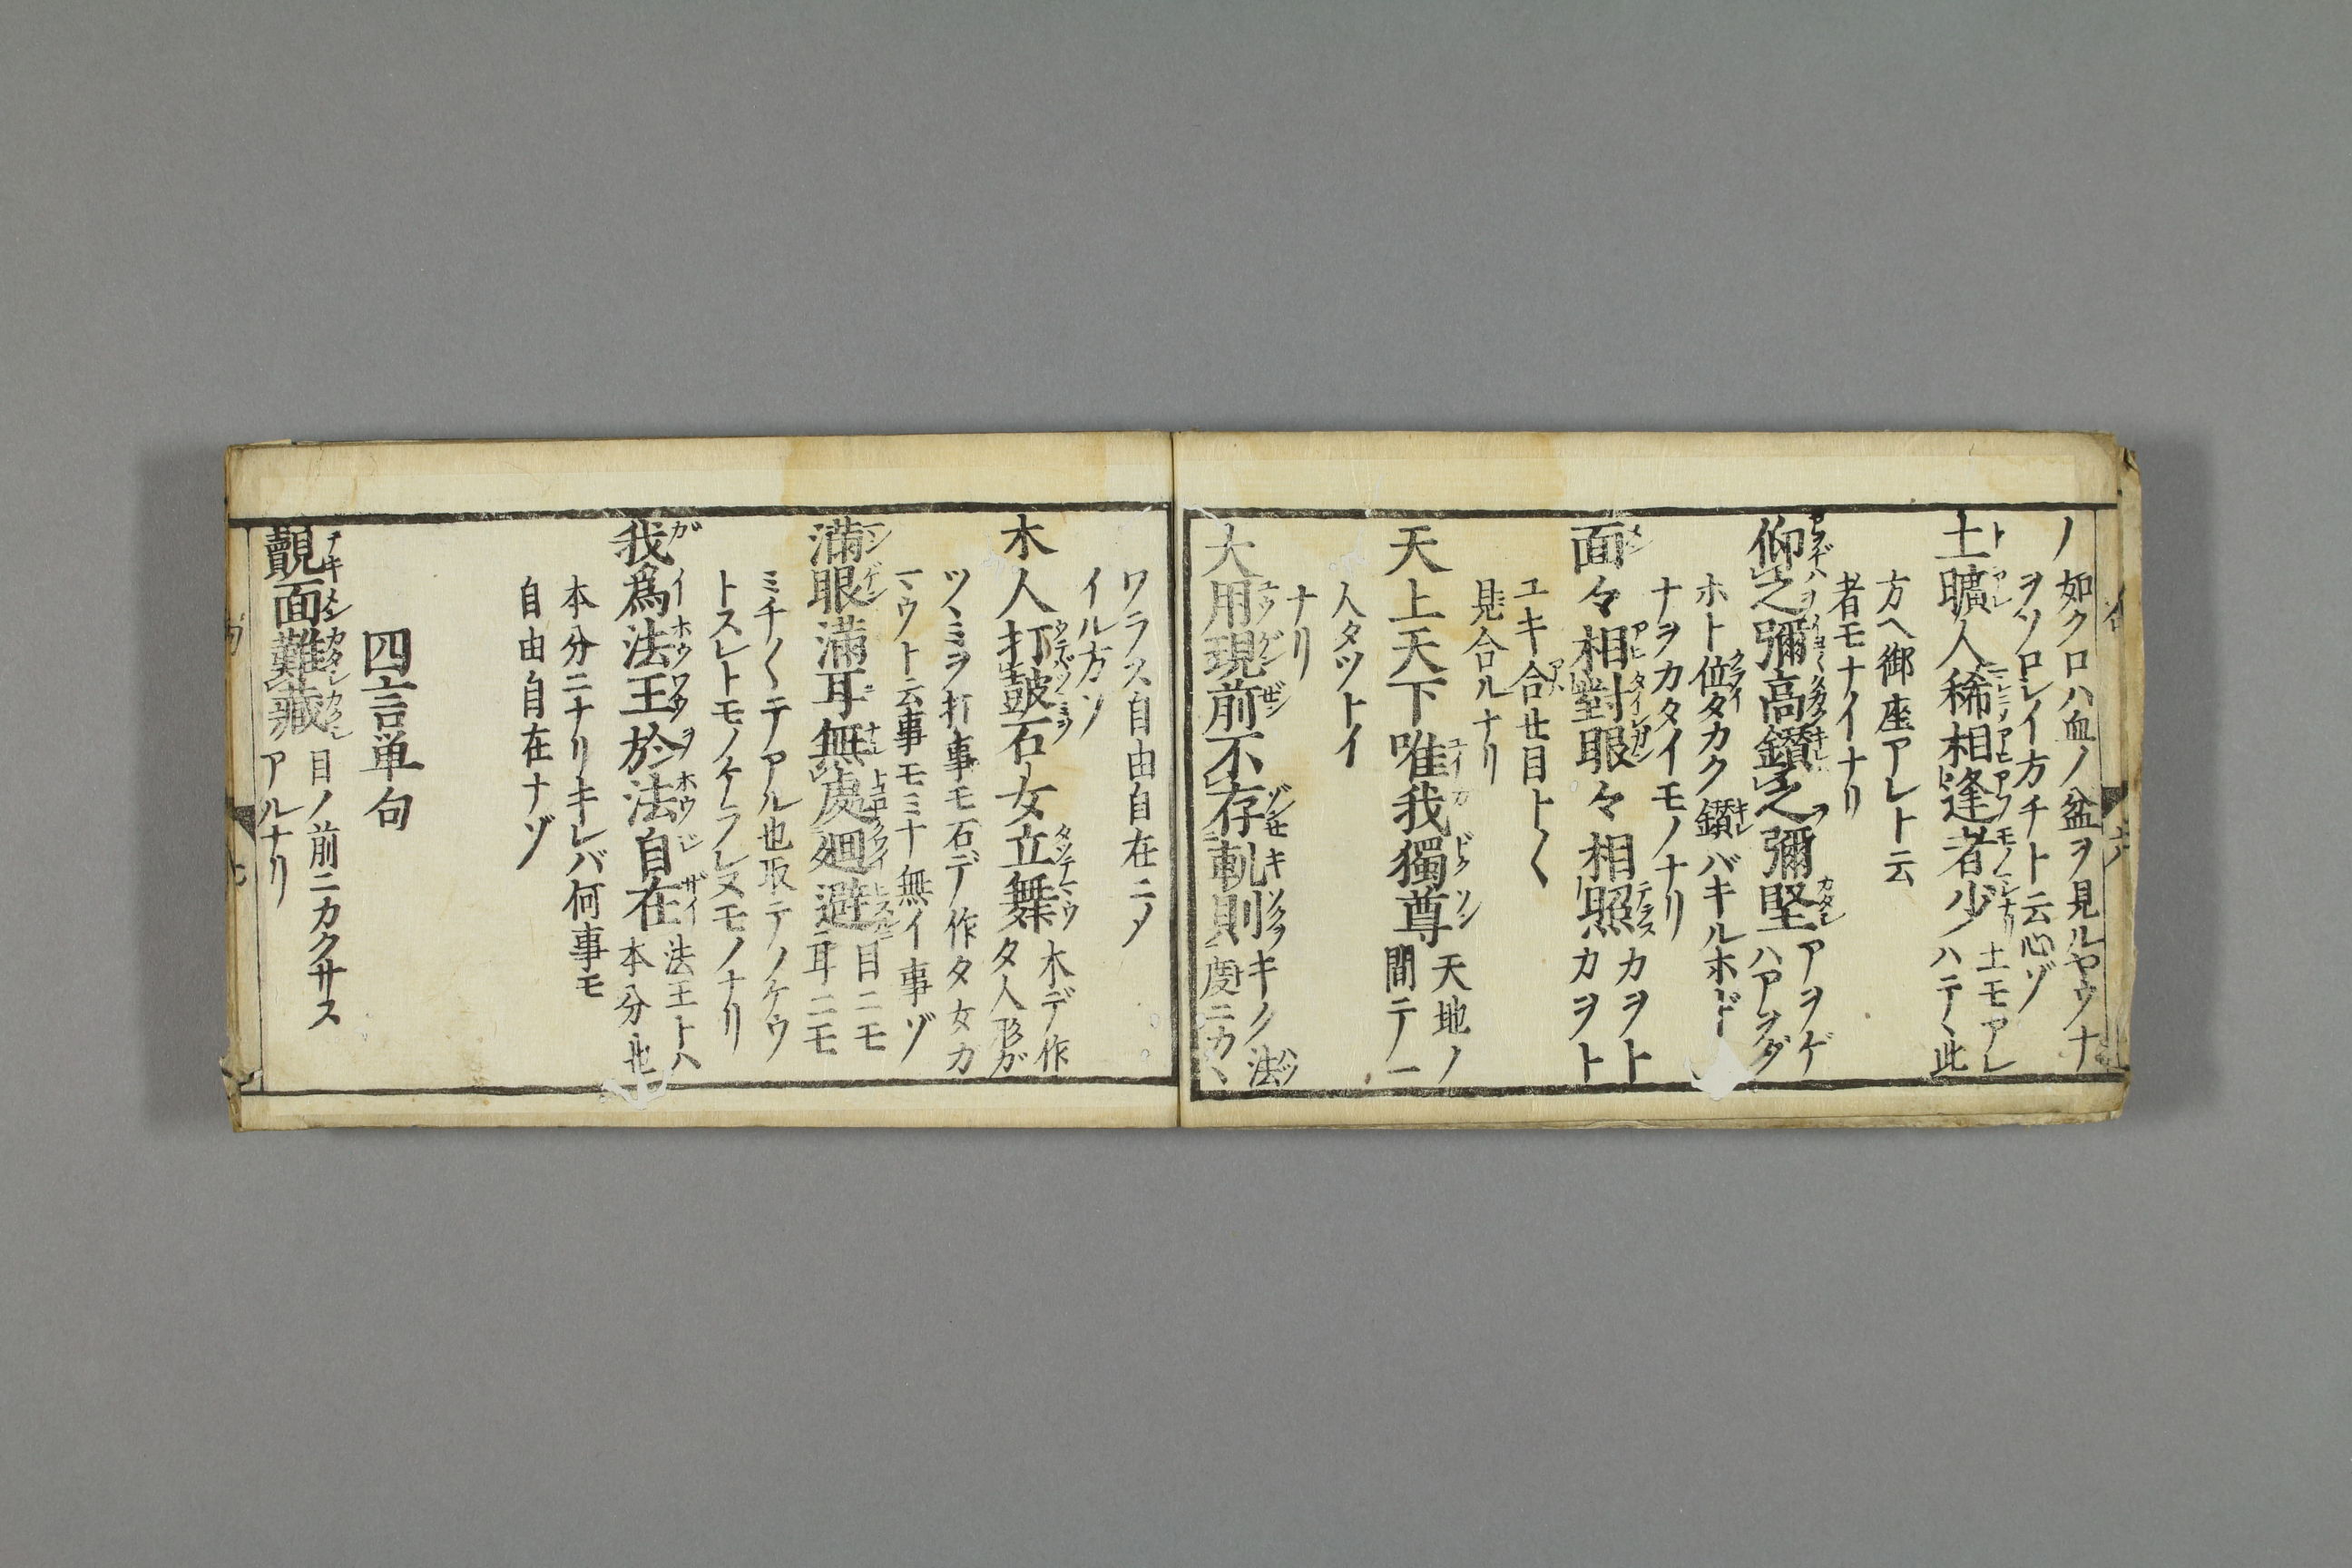 ノ如クロハ血ノ盆ヲ見ルヤウナ
ヲソロシイ方チト云心ゾ
土曠人稀相逢者少 土モアレ
ハテヽ此
方ヘ御座アレト云
者モナイナリ
仰之彌高鑚之彌堅 アヲゲ
ハアヲグ
ホト位タカク鑚バキルホド
ナヲカタイモノナリ
面々相對眼々相照 カヲト
カヲト
ユキ合せ目ト〱
見合ルナリ
天上天下唯我獨尊 天地ノ
間テ一
人タツトイ
ナリ
大用現前不存軌則 キノク法
度ニカヽ
ワラス自由自在ニメ
イル方ソ
木人打鼓石女立舞 木デ作
タ人形ガ
ツヽミヲ打事モ石デ作タ女カ
マウト云事モミナ無イ事ゾ
滿眼滿耳無處廻避 目ニモ
耳ニモ
ミチ〱テアル也取テノケウ
トスレトモノケラレヌモノナリ
我爲法王於法自在 法王トハ
本分也
本分ニナリキレバ何事モ
自由自在ナゾ
四言単句
覿面難藏 目ノ前ニカクサス
アルナリ